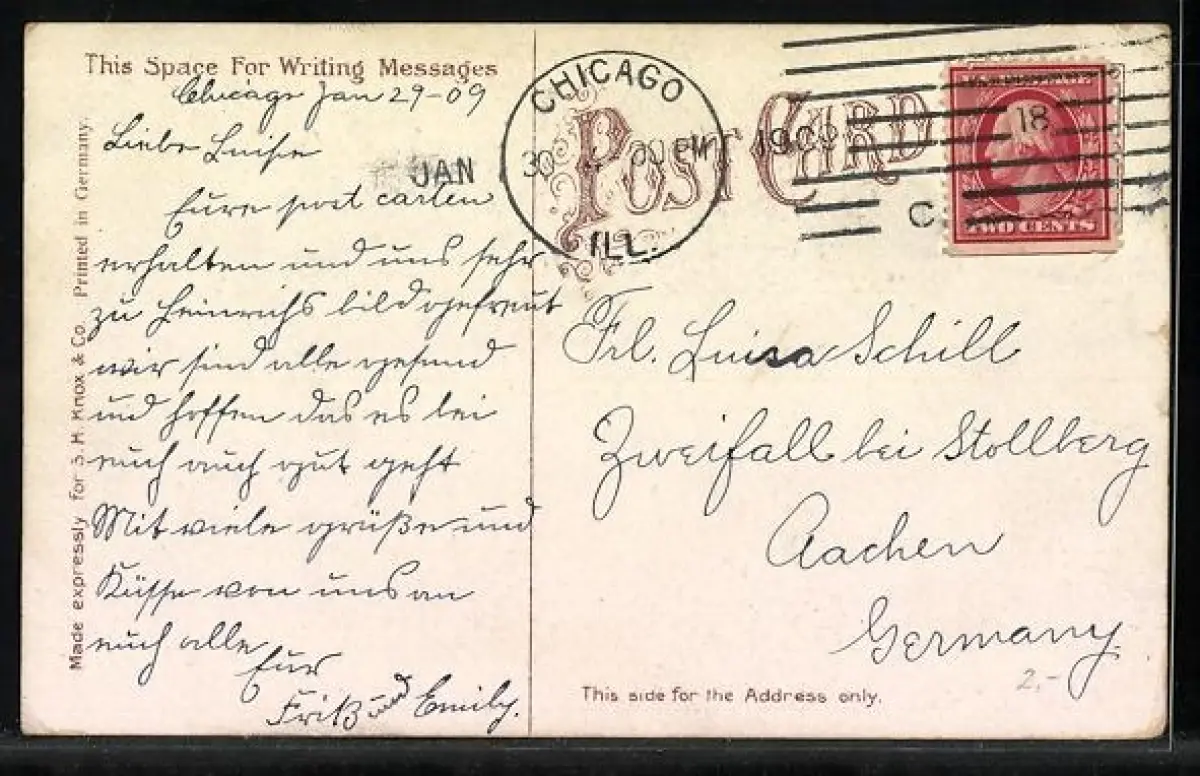 This Space For Writing Messages
Chicago Jan 29-09
Liebe Luise
Eure post carten
erhalten und uns sehr
zu Heinrichs bild gefreut
wir sind alle gesund
und hoffen das es bei
euch auch gut geht
Mit viele grüße und
Küsse von uns an
euch alle
Eur
Fritz und Emily.
Made expressly for S. H. Knox & Co. Printed in Germany.
POST CARD
CHICAGO
JAN 30 00 PM 1909
ILL.
18
C
TWO CENTS
Frl. Luisa Schill
Zweifall bei Stollberg
Aachen
Germany.
2,-
This side for the Address only.